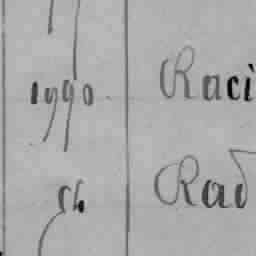 1990 Raci
Rad